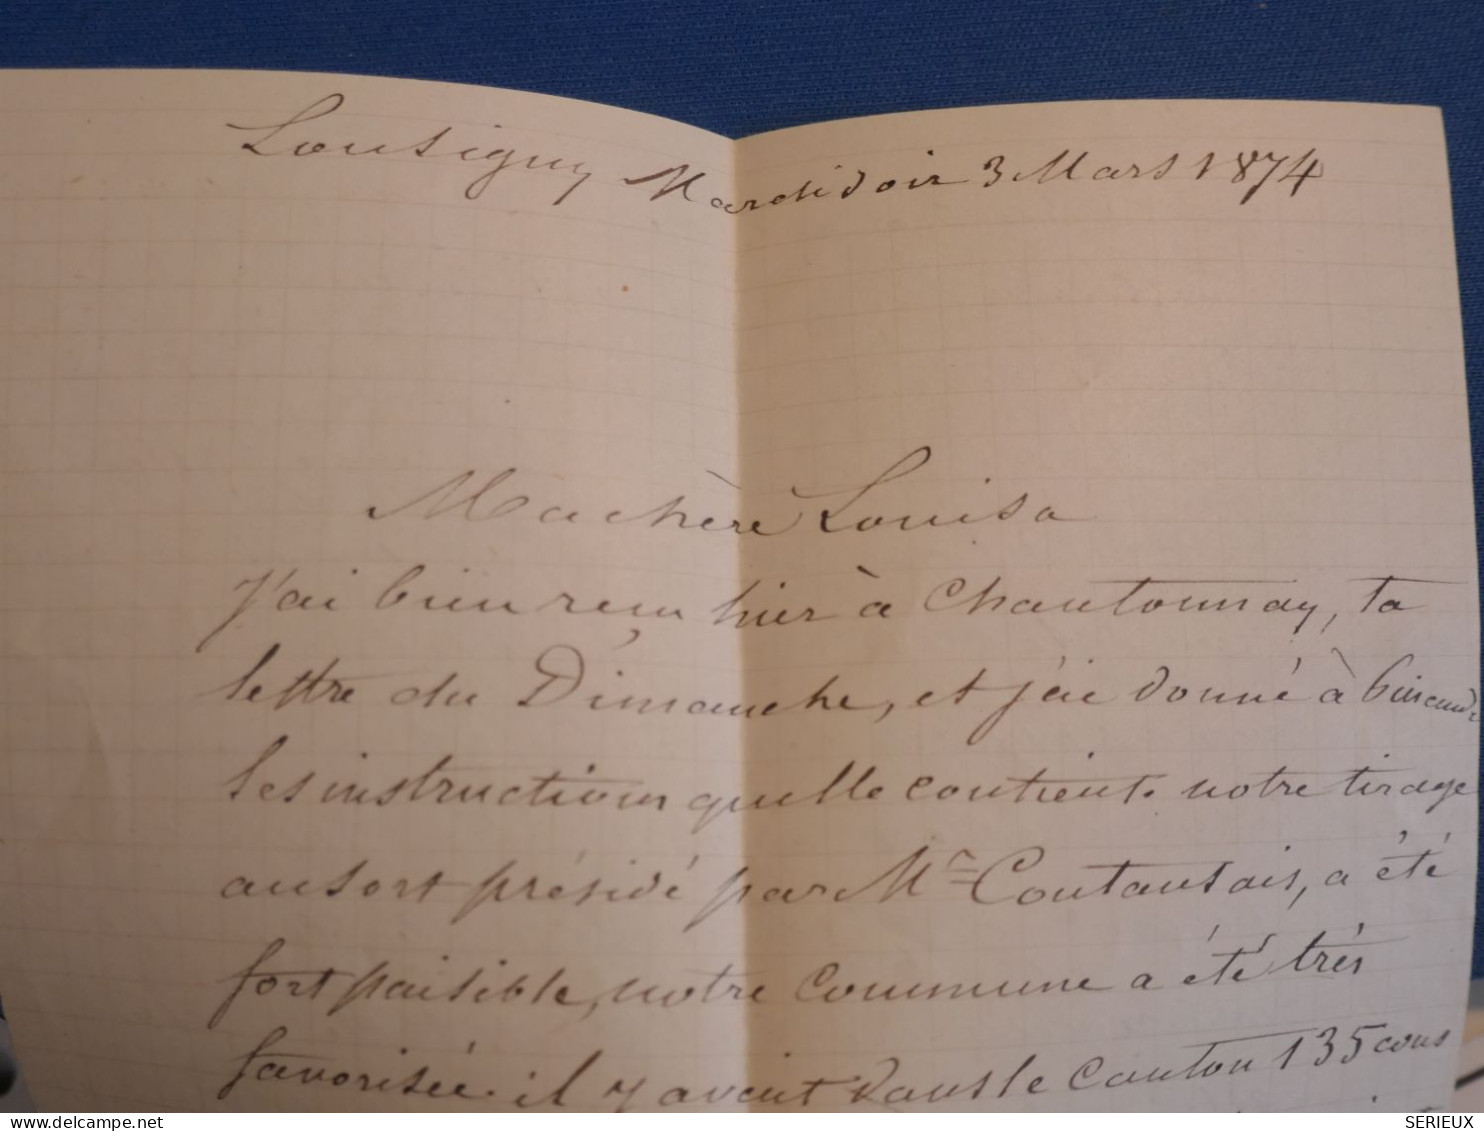 Lousigny Mardi soir 3 Mars 1874
Ma chère Louisa
J'ai bien reçu hier à Chantonnay, ta
lettre du Dimanche, et j'ai donné à
les instructions quelle contient. notre tirage
au sort présidé par Mr Coutansais, a été
fort paisible, notre commune a été très
favorisée. il y avait dans le canton 135 cons
SERIEUX